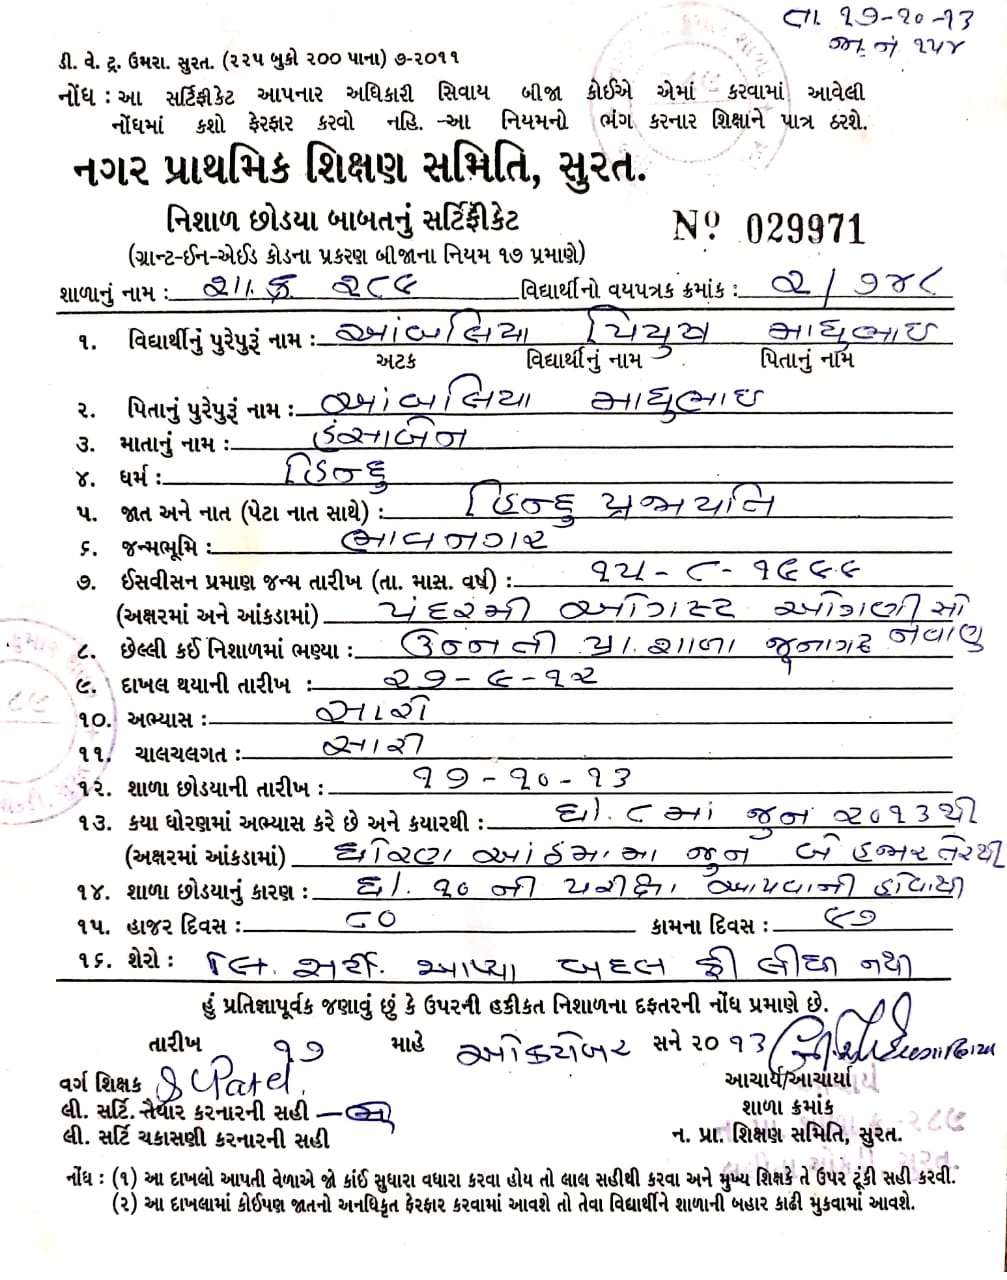 તા. ૧૭-૧૦-૧૩
જા. નં ૧૫૪
ડી. વે. ટ્ર. ઉમરા. સુરત. (૨૨૫ બુકો ૨૦૦ પાના) ૭-૨૦૧૧
નોંધ : આ સર્ટિફીકેટ આપનાર અધિકારી સિવાય બીજા કોઈએ એમાં કરવામાં આવેલી
નોંધમાં કશો ફેરફાર કરવો નહિ. -આ નિયમનો ભંગ કરનાર શિક્ષાને પાત્ર ઠરશે.
નગર પ્રાથમિક શિક્ષણ સમિતિ, સુરત.
નિશાળ છોડયા બાબતનું સર્ટિફીકેટ
Nº 029971
(ગ્રાન્ટ-ઈન-એઈડ કોડના પ્રકરણ બીજાના નિયમ ૧૭ પ્રમાણે)
શાળાનું નામ : શા. ક્ર. ૨૮૬ વિદ્યાર્થીનો વયપત્રક ક્રમાંક : ૨/૭૪૮
૧. વિદ્યાર્થીનું પુરેપુરૂં નામ : આંબલિયા પિયુષ માધુભાઇ
અટક વિદ્યાર્થીનું નામ પિતાનું નામ
૨. પિતાનું પુરેપુરૂં નામ : આંબલિયા માધુભાઇ
૩. માતાનું નામ : હંસાબેન
૪. ધર્મ : હિન્દુ
૫. જાત અને નાત (પેટા નાત સાથે) : હિન્દુ પ્રજાપતિ
૬. જન્મભૂમિ : ભાવનગર
૭. ઈસવીસન પ્રમાણ જન્મ તારીખ (તા. માસ. વર્ષ) : ૧૫-૮-૧૯૯૯
(અક્ષરમાં અને આંકડામાં) પંદરમી ઓગસ્ટ ઓગણીસો નવાણુ
૮. છેલ્લી કઈ નિશાળમાં ભણ્યા : ઉન્નતી પ્રા. શાળા જૂનાગઢ
૯. દાખલ થયાની તારીખ : ૨૭-૯-૧૨
૧૦. અભ્યાસ : સારો
૧૧. ચાલચલગત : સારી
૧૨. શાળા છોડયાની તારીખ : ૧૭-૧૦-૧૩
૧૩. કયા ધોરણમાં અભ્યાસ કરે છે અને કયારથી : ધો. ૮ માં જુન ૨૦૧૩થી
(અક્ષરમાં આંકડામાં) ધોરણ આઠમામા જુન બે હજાર તેરથી
૧૪. શાળા છોડયાનું કારણ : ધો. ૧૦ ની પરીક્ષા આપવાની હોવાથી
૧૫. હાજર દિવસ : ૮૦ કામના દિવસ : ૯૭
૧૬. શેરો : લિ. સર્ટી. આપ્યા બદલ ફી લીધી નથી
હું પ્રતિજ્ઞાપૂર્વક જણાવું છું કે ઉપરની હકીકત નિશાળના દફતરની નોંધ પ્રમાણે છે.
તારીખ ૧૭ માહે ઓકટોબર સને ૨૦૧૩
વર્ગ શિક્ષક S Patel.
આચાર્ય/આચાર્યા
લી. સર્ટિ. તૈયાર કરનારની સહી
શાળા ક્રમાંક
લી. સર્ટિ ચકાસણી કરનારની સહી
ન. પ્રા. શિક્ષણ સમિતિ, સુરત.
નોંધ : (૧) આ દાખલો આપતી વેળાએ જો કાંઈ સુધારા વધારા કરવા હોય તો લાલ સહીથી કરવા અને મુખ્ય શિક્ષકે તે ઉપર ટૂંકી સહી કરવી.
(૨) આ દાખલામાં કોઈપણ જાતનો અનધિકૃત ફેરફાર કરવામાં આવશે તો તેવા વિદ્યાર્થીને શાળાની બહાર કાઢી મુકવામાં આવશે.